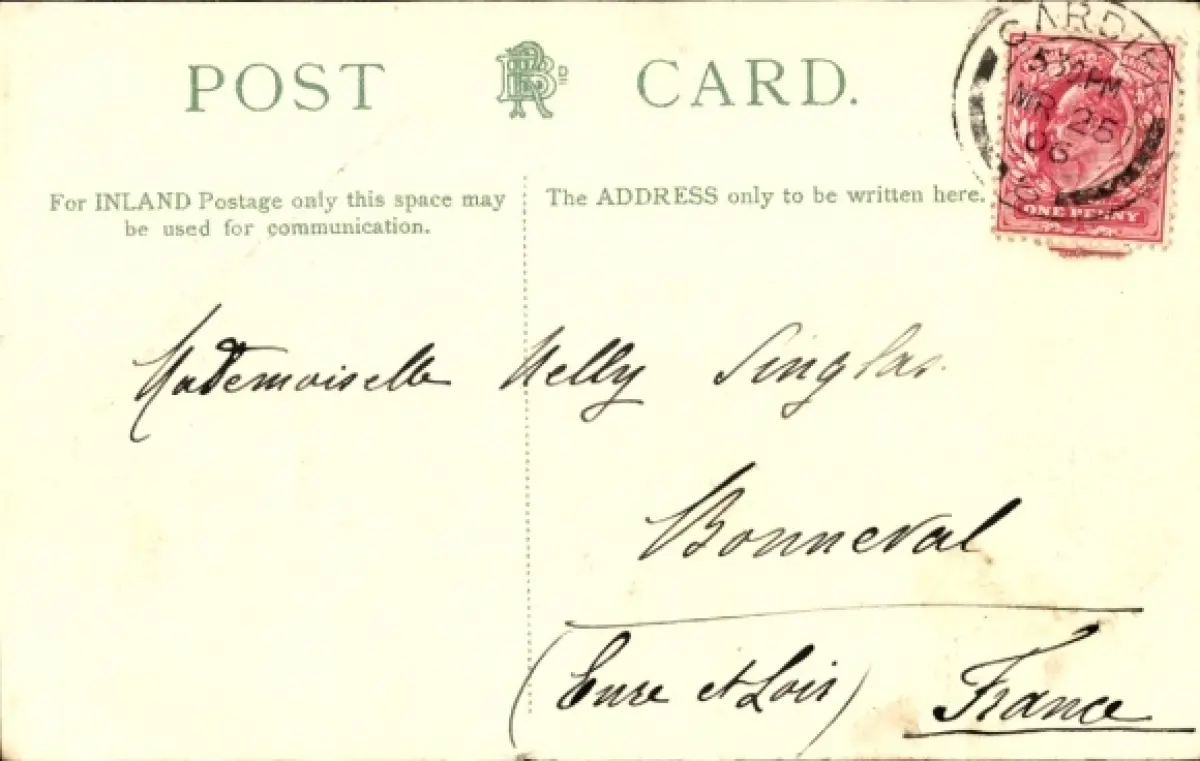 POST CARD.
CARDIFF
5 30 PM
MR 25
06
ONE PENNY
For INLAND Postage only this space may
be used for communication.
The ADDRESS only to be written here.
Mademoiselle Nelly Singlas.
Bonneval
(Eure et Loir) France